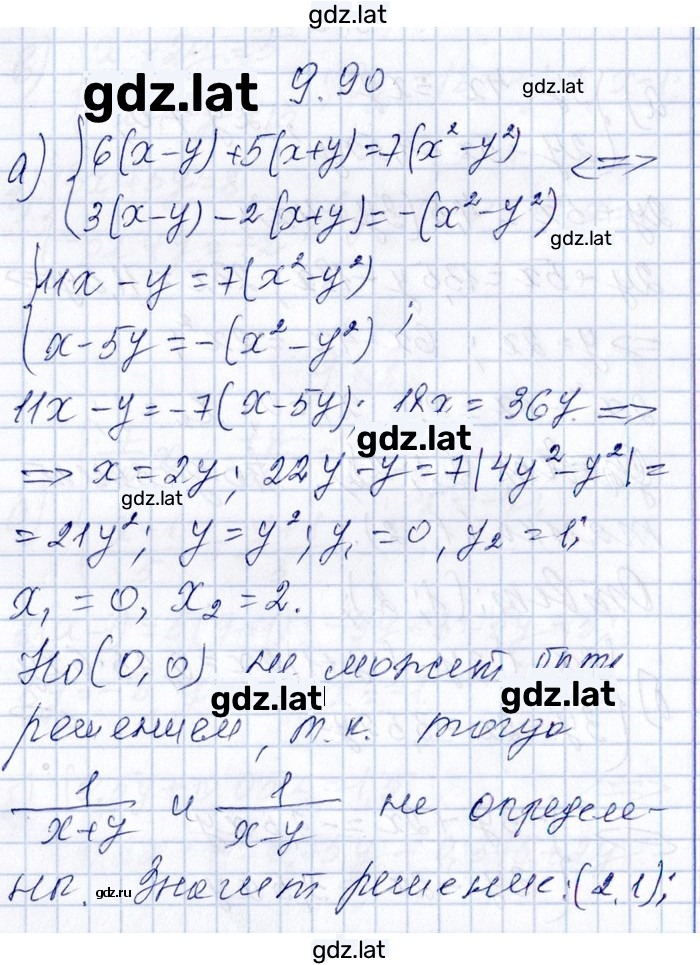 gdz.lat
gdz.lat 9.90 gdz.lat
а) { 6(x-y)+5(x+y)=7(x²-y²) <=>
3(x-y)-2(x+y)=-(x²-y²)
gdz.lat
{ 11x-y=7(x²-y²)
x-5y=-(x²-y²) ;
11x-y=-7(x-5y); 18x=36y =>
gdz.lat
=> x=2y; 22y-y=7|4y²-y²|=
gdz.lat
=21y²; y=y²; y₁=0, y₂=1;
x₁=0, x₂=2.
Но (0,0) не может быть
gdz.lat gdz.lat
решением, т.к. тогда
1/(x+y) и 1/(x-y) не определе-
ны. gdz.ru Значит решение: (2,1);
gdz.lat